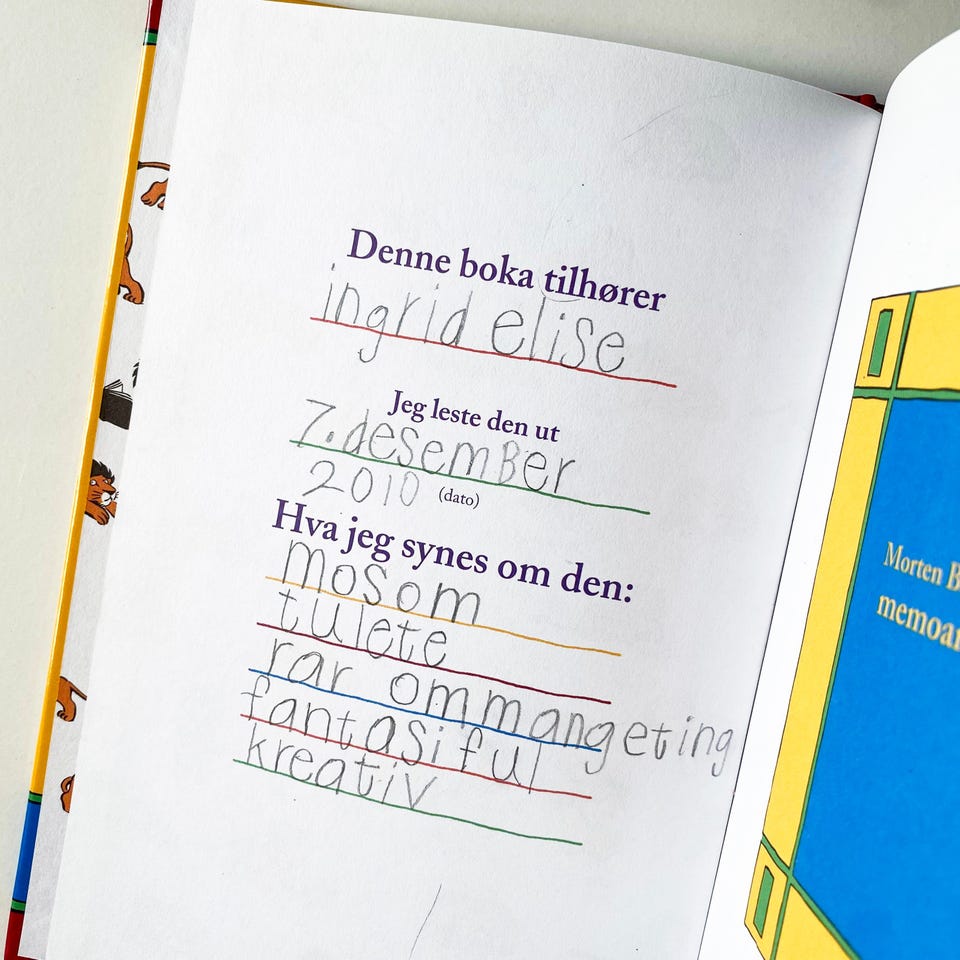 Denne boka tilhører
ingrid elise
Jeg leste den ut
7. desemBer
2010 (dato)
Hva jeg synes om den:
mosom
tulete
rar ommangeting
fantasiful
kreativ
Morten
memoa